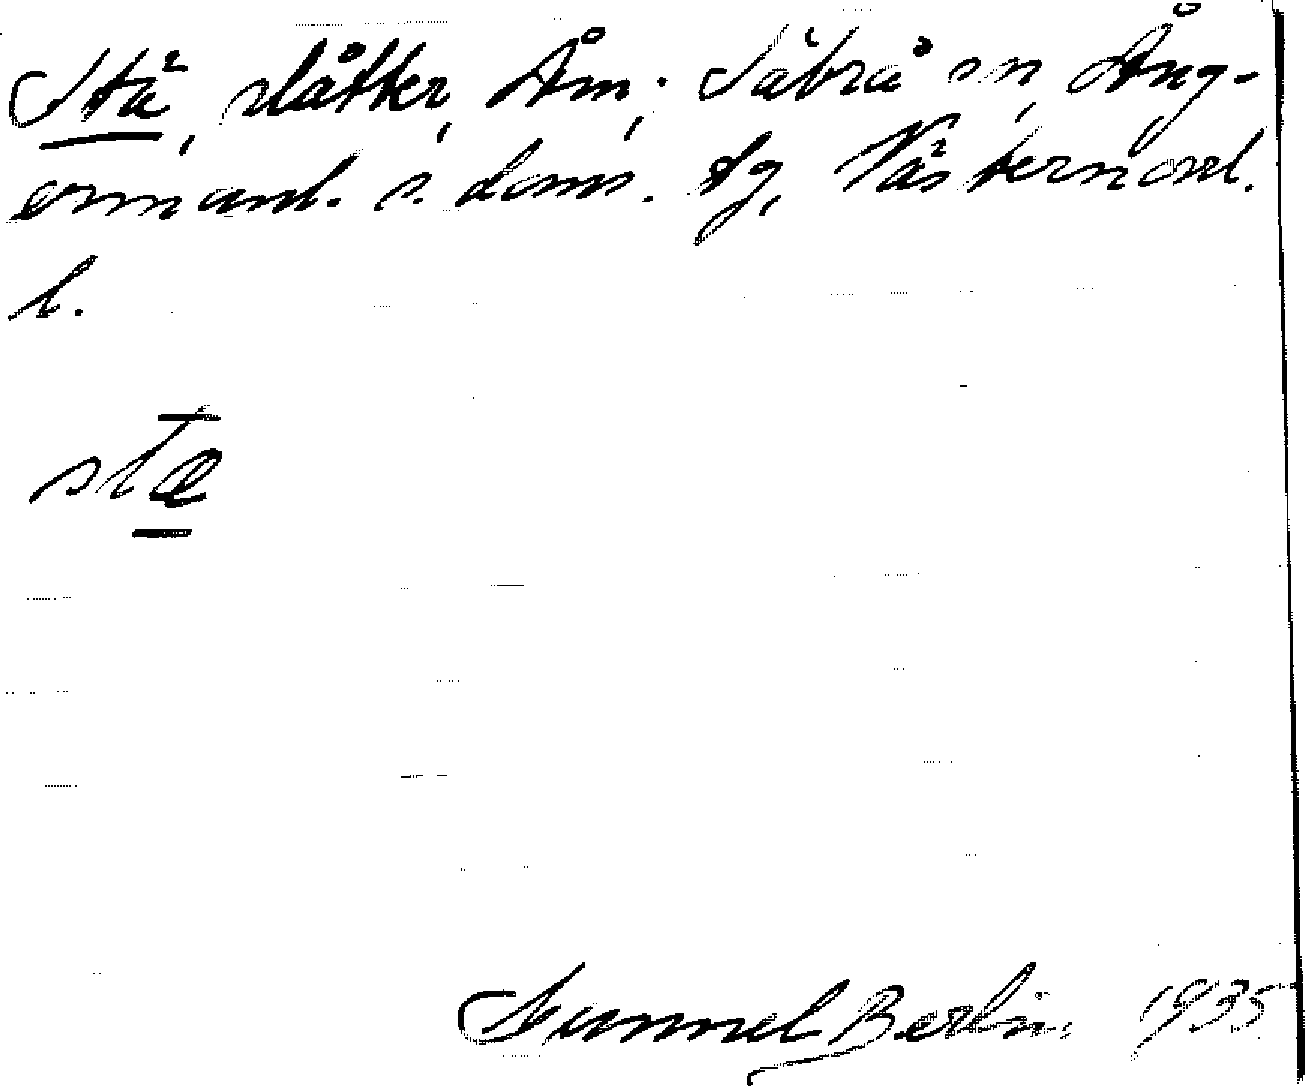 Stä, slåtter, Åm, Säbrå sn, Ång-
ermanl. s. doms. tg, Västernorrl.
l.
stæ
Gunnel Berlin 1935